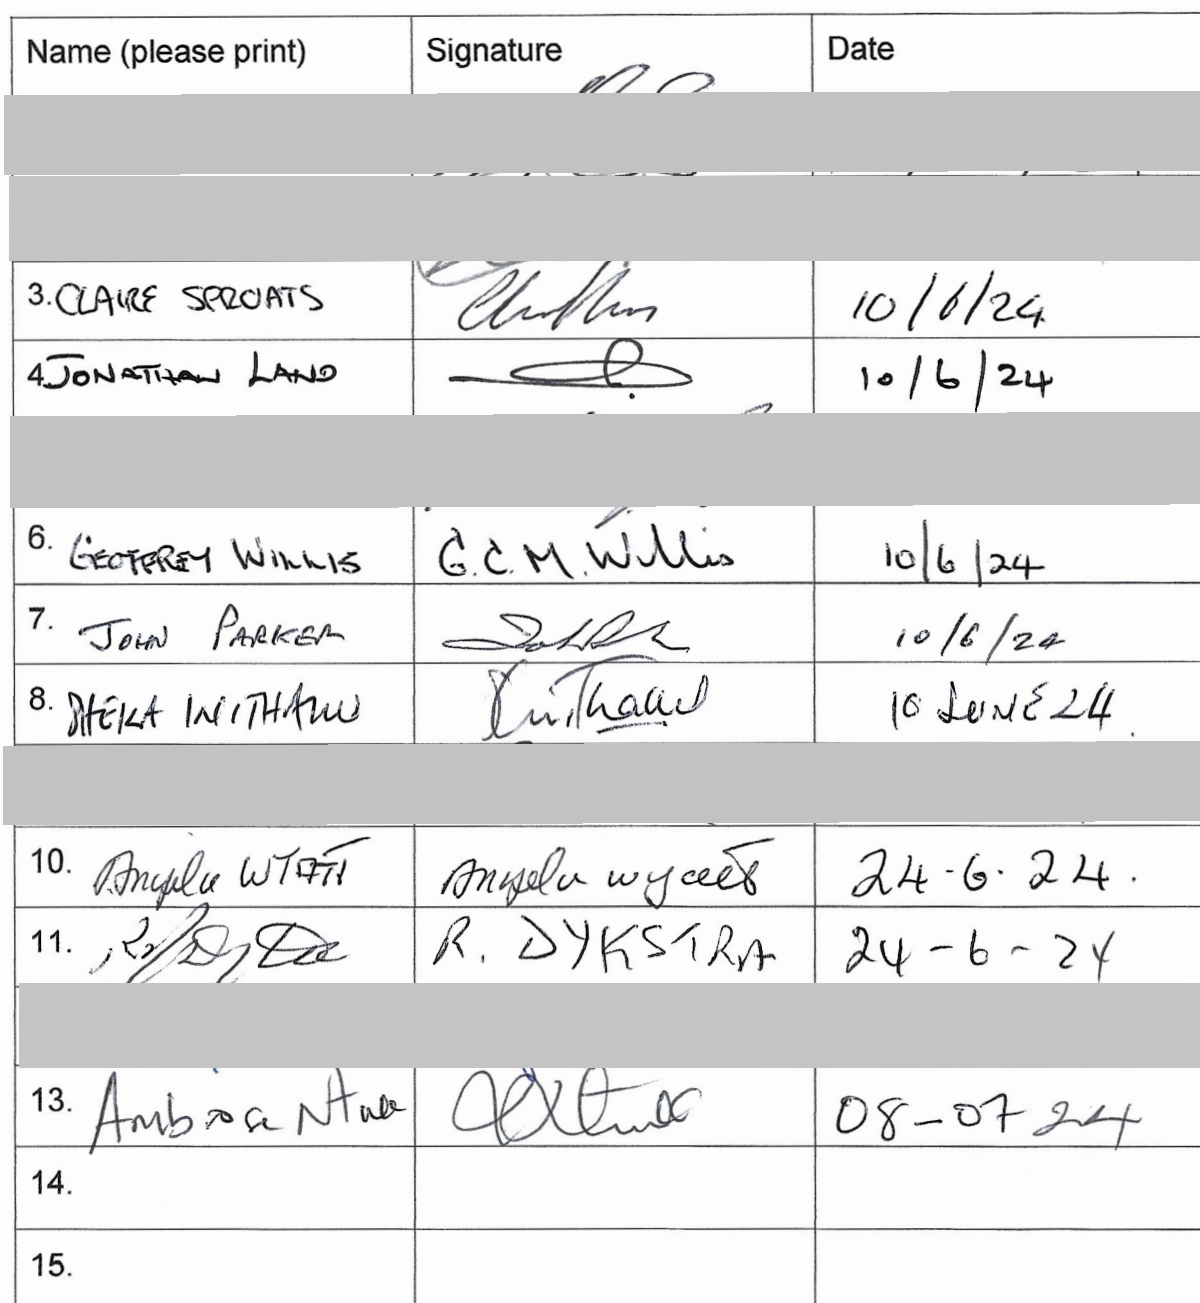 Name (please print) Signature Date
3. CLAIRE SPROATS 10/6/24
4 JONATHAN LAND 10/6/24
6. GEOFFREY WILLIS G.C.M. Willis 10/6/24
7. JOHN PARKER 10/6/24
8. 10 JUNE 24
10. Angela WYATT Angela Wyatt 24-6-24.
11. R. DYKSTRA 24-6-24
13. Ambrose 08-07 24
14.
15.